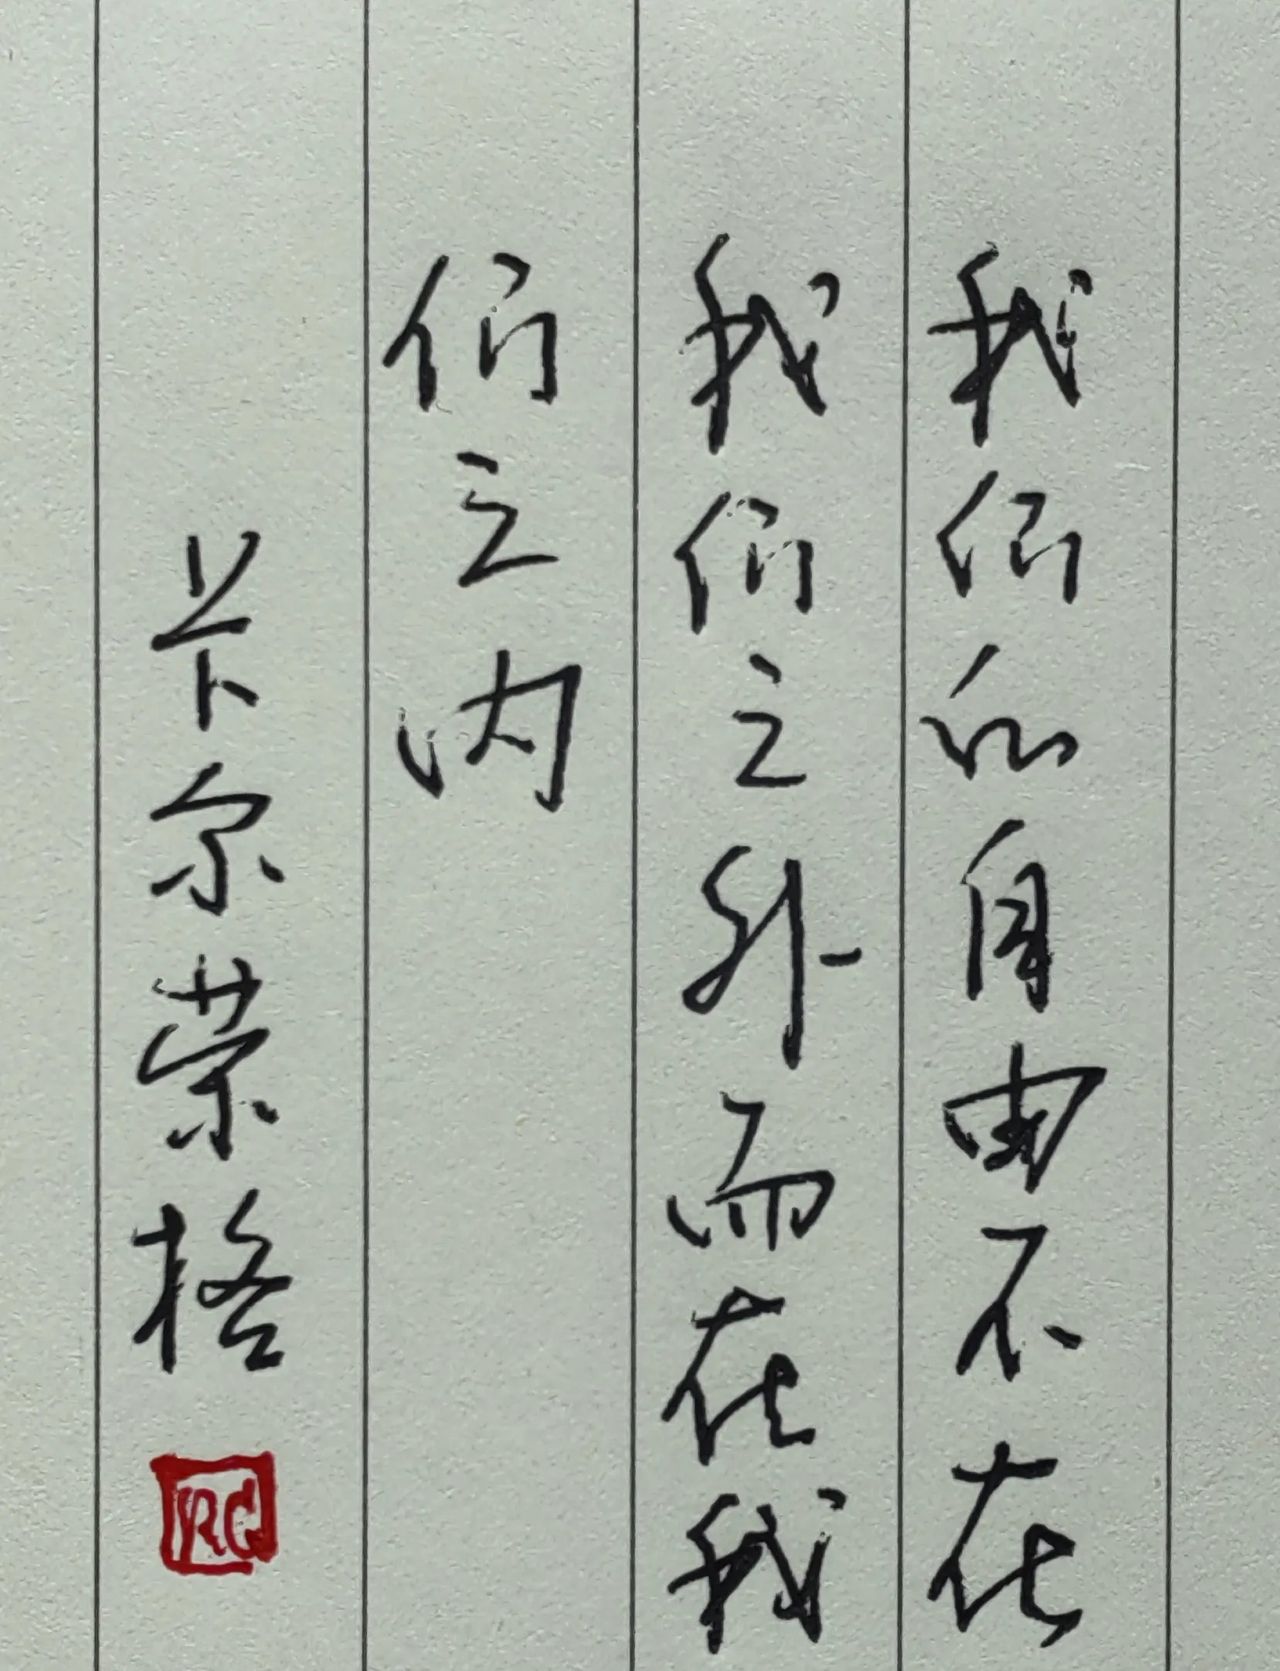 我们的自由不在
我们之外而在我
们之内
卡尔荣格
RC